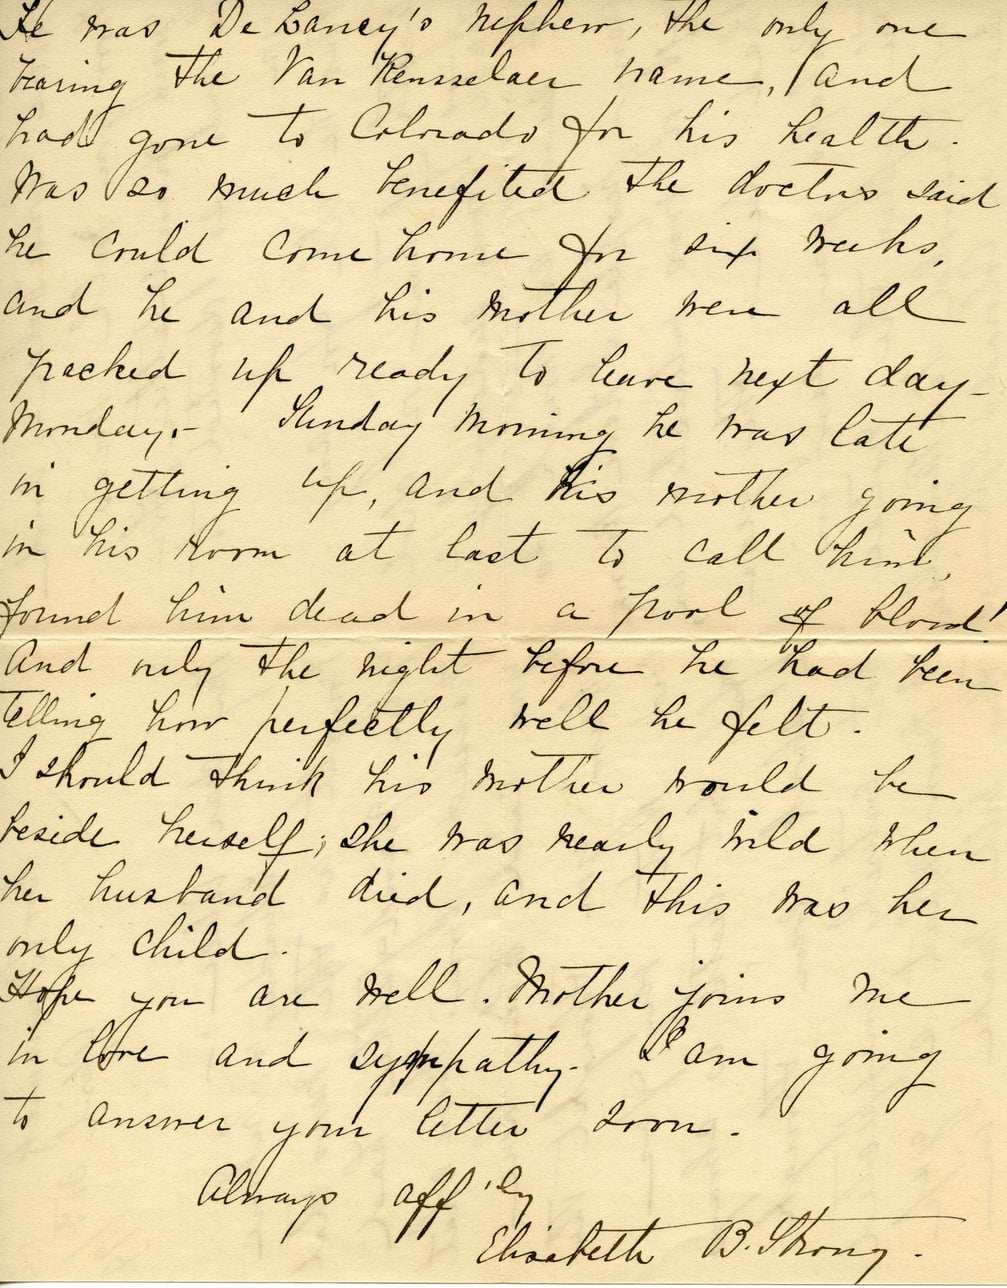 He was De Lancey's nephew, the only one
bearing the Van Rensselaer name, and
had gone to Colorado for his health.
Was so much benefited the doctors said
he could come home for six weeks,
and he and his mother were all
packed up ready to leave next day -
Monday. - Sunday morning he was late
in getting up, and his mother going
in his room at last to call him,
found him dead in a pool of blood!
And only the night before he had been
telling how perfectly well he felt.
I should think his mother would be
beside herself; she was nearly wild when
her husband died, and this was her
only child.
Hope you are well. Mother joins me
in love and sympathy. I am going
to answer your letter soon.
Always aff'ly
Elisabeth B. Strong.